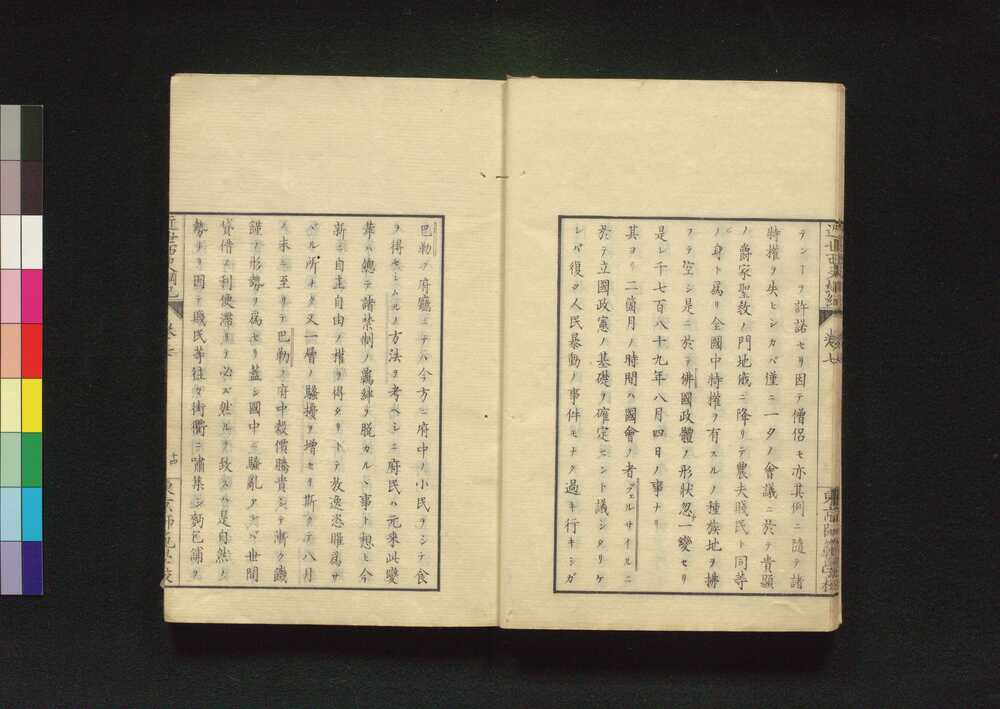 テンーヲ許諾セリ因テ僧侶モ亦其例ニ隨テ諸
特權ヲ失ヒシカバ僅ニ一夕ノ會議ニ於テ貴顯
ノ爵家聖敎ノ門地咸ニ降リテ農夫賤民ト同等
ノ身ト爲リ全國中特權ヲ有スルノ種族地ヲ拂
フテ空シ是ニ於テ佛國政體ノ形狀忽一變セリ
是レ千七百八十九年八月四日ノ事ナリ
其ヨリ二箇月ノ時間ハ國會ノ者ヴェルサイルニ
於テ立國政憲ノ基礎ヲ確定セント議シタリケ
レバ復タ人民暴動ノ事件モナク過キ行キシガ
巴勒ヲ府廳ニテハ今方ニ府中ノ小民ヲシテ食
ヲ得セシムルノ方法ヲ考ヘシニ府民ハ元來此變
革ハ總テ諸禁制ノ羈絆ヲ脱カルヽ事ト想ヒ今
新ニ自主自由ノ權ヲ得タリトテ放逸恣睢爲サ
ザル所ナク又一層ノ騷擾ヲ增セリ斯クテ八月
ノ末ニ至リテ巴勒ノ府中穀價騰貴シテ漸ク饑
饉ノ形勢ヲ爲セリ蓋シ國中ニ騷亂アレバ世間
貸借ノ利便滯リヲ必ズ然ルヲ致スハ是自然ノ
勢ナリ因テ職民等往々街衢ニ嘯集シ麪包舖ヲ
近世西史綱紀
卷七
十四
東京師範學校